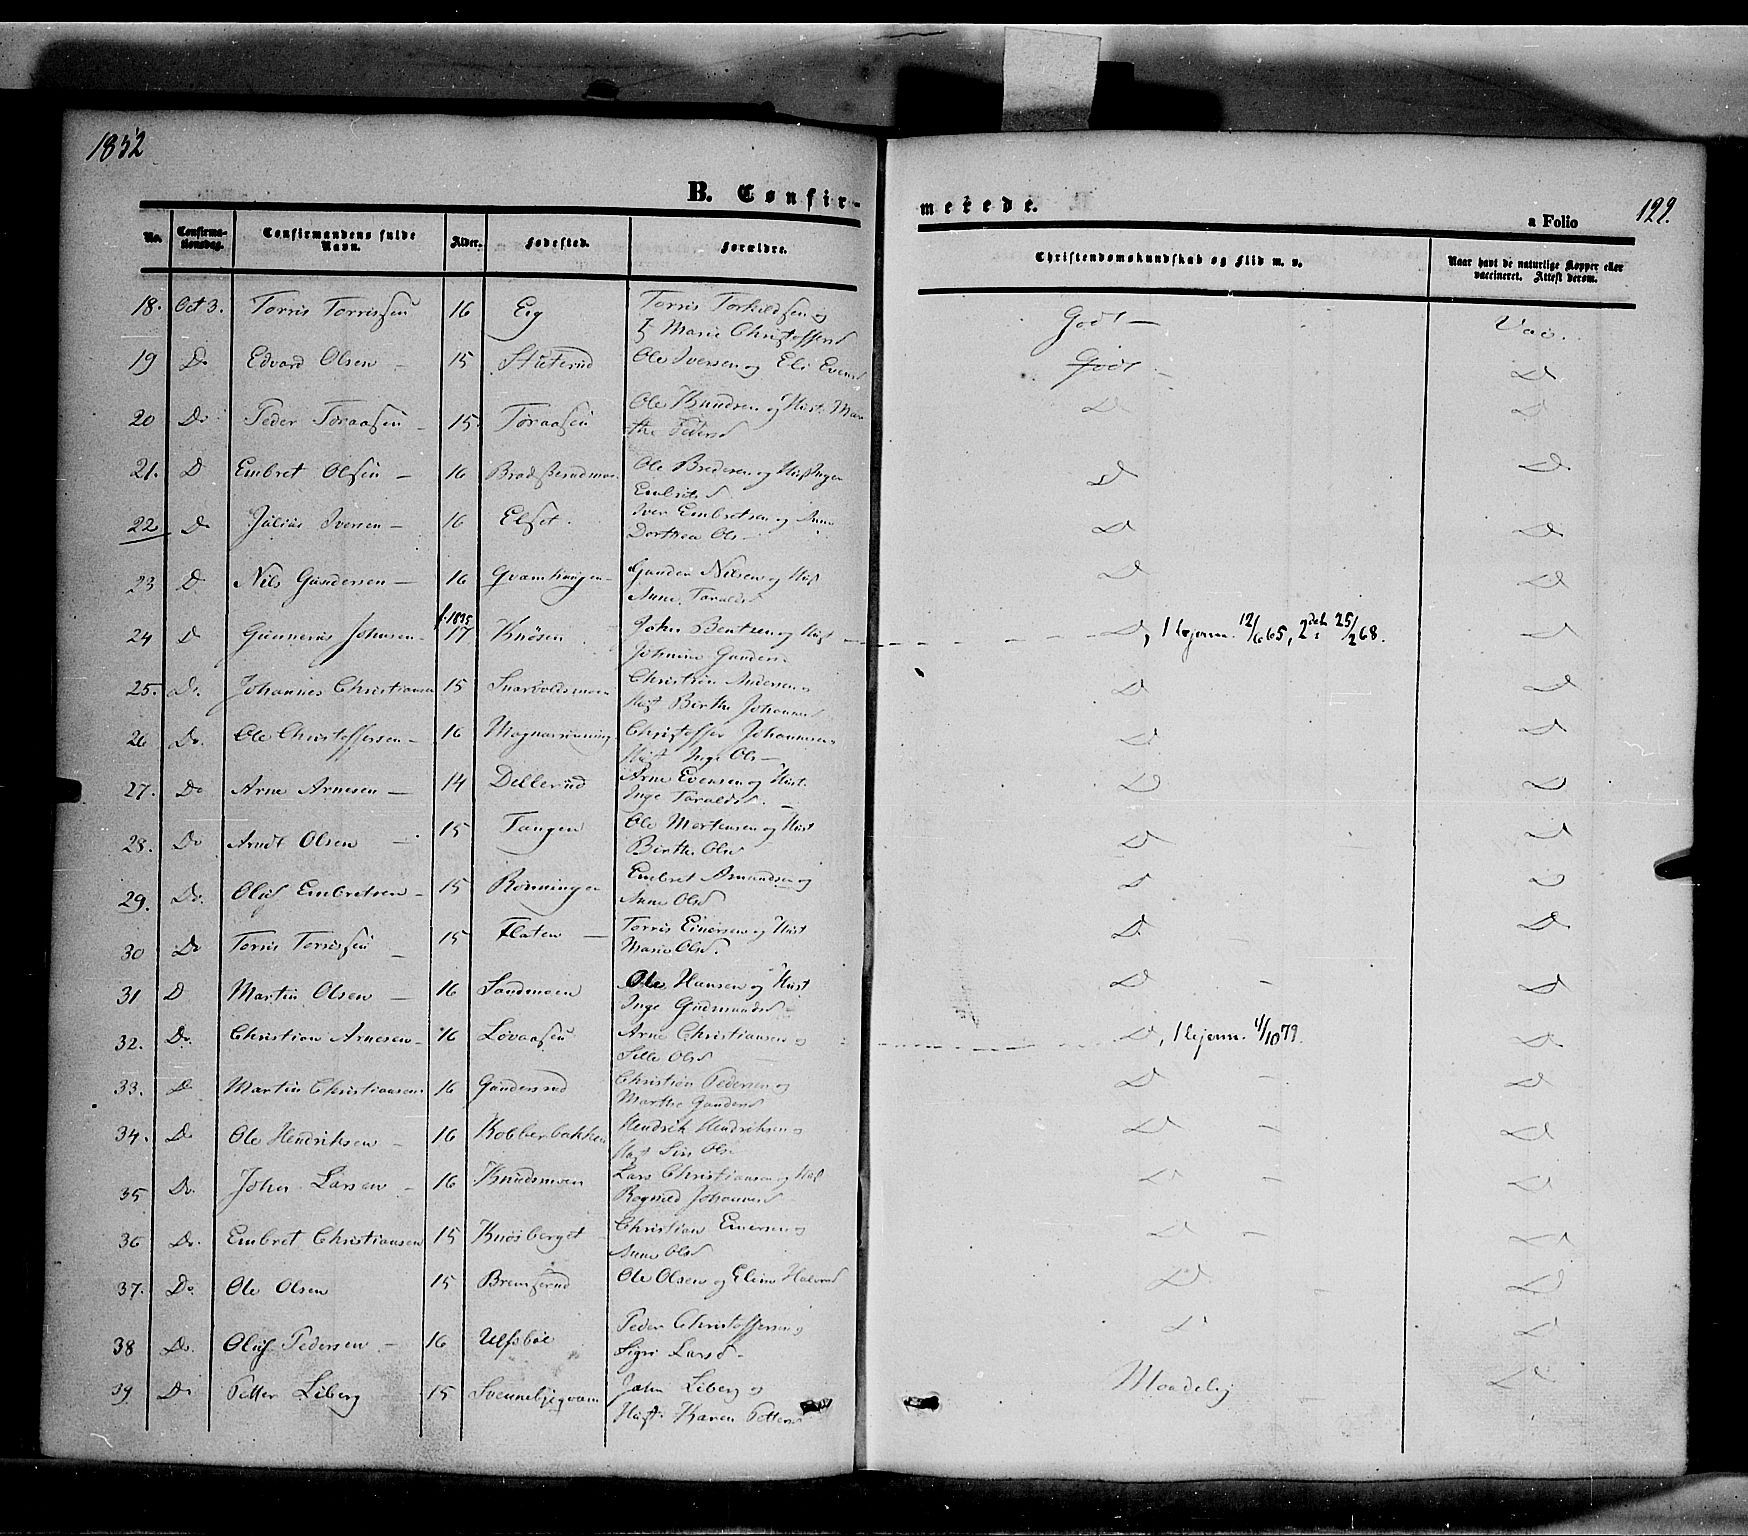 1852
B. Confir-
merede.
a Folio
122.
No.
Confirma-
tionsdag.
Confirmandens fulde
Navn.
Alder.
Fødested.
Forældre.
Christendomskundskab og Flid m. v.
Naar havt de naturlige Kopper eller
vaccineret. Attest derom.
18. Oct 3. Torris Torrissen 16 Eig Torris Torkildsen og
H Marie Christoffersd Godt — Vac.
19 Do Edvard Olsen — 15 Ole Iversen og Eli Evensd Godt — D
20 Do Peder Toraasen — 15 Toraasen Ole Knudsen og Hust. Mar-
the Pedersd D D
21. D Embret Olsen — 16 Ole Bredesen og Hust Inger
Embretsd D D
22 D Julius Iversen — 16 Elset. Iver Embretsen og Anne
Dorthea Ols— D D
23 D Nils Gundersen — 16 Gunder Nilsen og Hust
Anne Taraldsd D D
f. 1835
24 D Gunnerius Johnsen — 17 Knøsen John Bentsen og Hust —
Johnine Gundersd D, 1 lejerm. 12/6 65, 2det 25/2 68. D
25. Do. Johannes Christiansen 15 Snarvoldsmoen Christian Andersen og
Hust Birthe Johannesd D D
26 Do. Ole Christoffersen — 16 Christoffer Johannesen og
Hust Inge Ols— D D
27. Do Arne Arnesen — 14 Dellerud Arne Evensen og Hust.
Inge Taraldsd. — D D
28. Do Arndt Olsen — 15 Tangen Ole Mortensen og Hust
Birthe Olsd D D
29. Do. Oluf Embretsen — 15 Rønningen Embret Amundsen og
Anne Olsd D D
30 Do Torris Torrissen — 15 Flaten — Torris Einersen og Hust
Marie Olsd. D D
31 D Martin Olsen — 16 Sandmoen Ole Hansen og Hust
Inge Gudmundsd D — D
32. Do. Christian Arnesen — 16 Lövaasen Arne Christiansen og
Sille Olsd D, 1 lejerm. 4/10 79. D
33. D Martin Christiansen 16 Gundersrud Christian Pedersen og
Marthe Gundersd D — D
34. Do Ole Hendriksen — 16 Kobberbakken Hendrik Hendriksen og
Hust Siri Olsd D — D
35 Do. John Larsen — 16 Knudsmoen Lars Christiansen og Hust
Rognild Johannesd D — D
36 Do. Embret Christiansen 15 Knøsberget — Christian Einersen og
Anne Olsd D — D
37. Do. Ole Olsen 15 Bremserud Ole Olsen og Eline Halvorsd D D
38 Do. Oluf Pedersen — 16 Ulfsböl Peder Christoffersen og
Sigri Larsd— D D
39. Do Petter Liberg 15 John Liberg og
Hust. Karen Pettersd Maadelig D